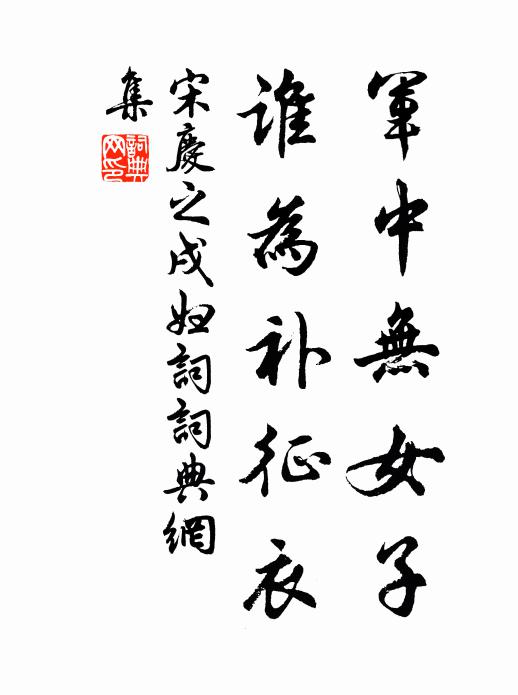 軍中無女子
誰為补征衣
宋慶之戍妇詞詞典網
集
詞典網印